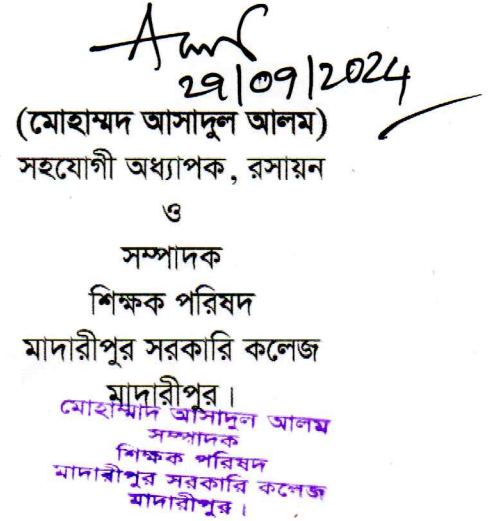 29/09/2024
(মোহাম্মদ আসাদুল আলম)
সহযোগী অধ্যাপক, রসায়ন
ও
সম্পাদক
শিক্ষক পরিষদ
মাদারীপুর সরকারি কলেজ
মাদারীপুর।
মোহাম্মাদ আসাদুল আলম
সম্পাদক
শিক্ষক পরিষদ
মাদারীপুর সরকারি কলেজ
মাদারীপুর।